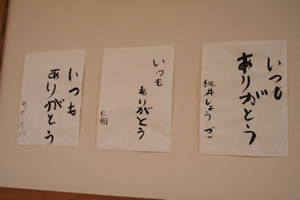 いつも
ありがとう
いつも
ありがとう
仁樹
いつも
ありがとう
桃井しょうご